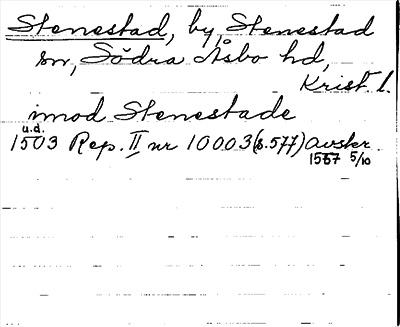 Stenestad, by, Stenestad
sn, Södra Åsbo hd,
Krist. l.
imod Stenestade
u.d.
1503 Rep. II nr 10003 (s. 577) Avskr.
1567 5/10